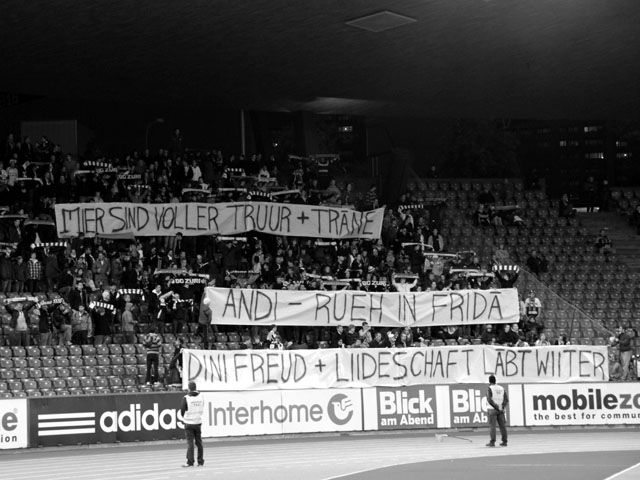 MIER SIND VOLLER TRUUR + TRÄNE
ANDI - RUEH IN FRIDÄ
DINI FREUD + LIIDESCHAFT LÄBT WIITER
adidas
Interhome
Blick
am Abend
Blick
am Abend
mobilezo
the best for commun